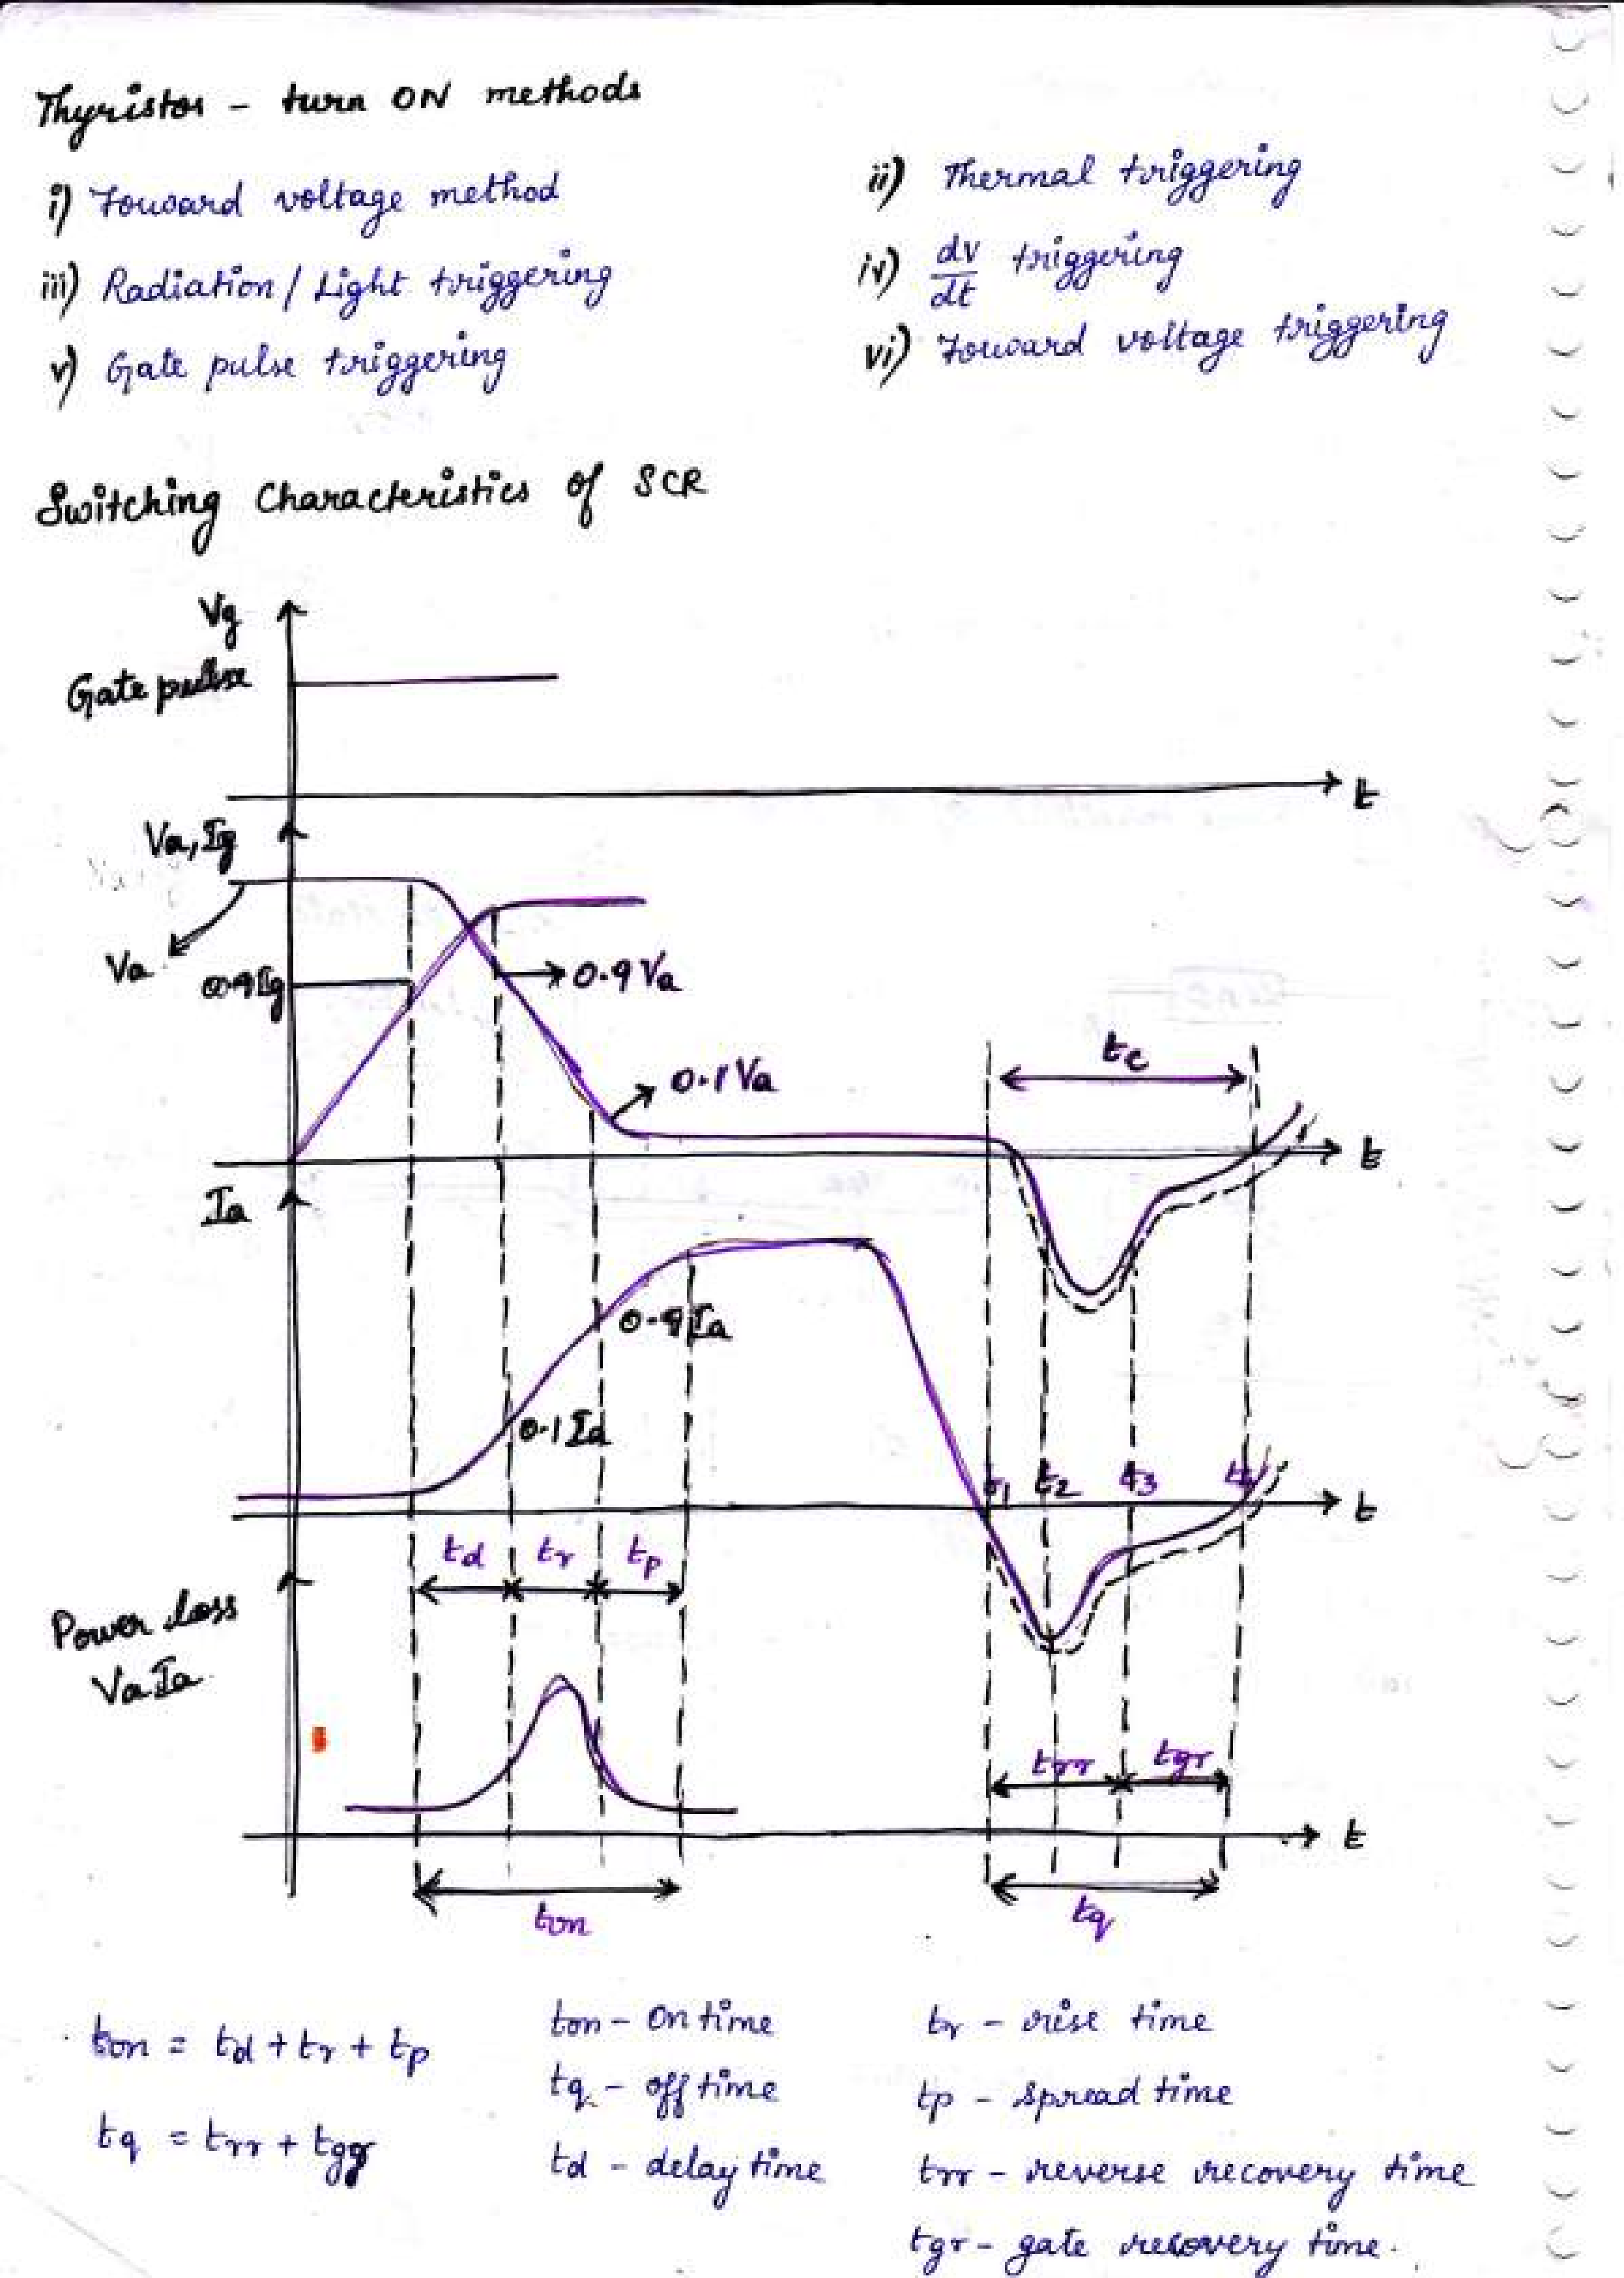 Thyristor - turn ON methods
i) Forward voltage method
ii) Thermal triggering
iii) Radiation / Light triggering
iv) dv/dt triggering
v) Gate pulse triggering
vi) Forward voltage triggering
Switching Characteristics of SCR
Vg
Gate pulse
t
Va, Ig
Va
0.9Ig
0.9 Va
0.1 Va
tc
t
Ia
0.9 Ia
0.1 Ia
t1 t2 t3 t4
t
td tr tp
Power loss
Va Ia
trr tgr
t
ton
tq
ton = td + tr + tp
ton - On time
tr - rise time
tq - off time
tp - spread time
tq = trr + tgr
td - delay time
trr - reverse recovery time
tgr - gate recovery time.